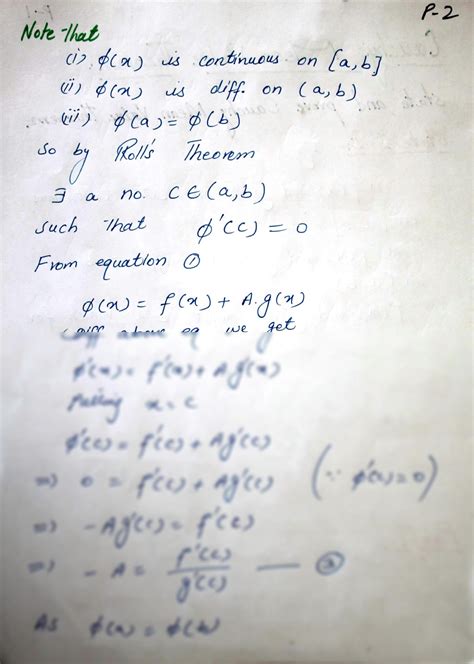 P-2
Note that
(i) φ(x) is continuous on [a,b]
(ii) φ(x) is diff. on (a,b)
(iii) φ(a) = φ(b)
So by Roll's Theorem
∃ a no. C∈(a,b)
such that φ'(c) = 0
From equation ①
φ(x) = f(x) + A.g(x)
Diff above eq we get
φ'(x) = f'(x) + Ag'(x)
Putting x=c
φ'(c) = f'(c) + Ag'(c)
=> 0 = f'(c) + Ag'(c) (∵ φ'(c)=0)
=> -Ag'(c) = f'(c)
=> -A = f'(c)/g'(c) — ②
As φ(a) = φ(b)